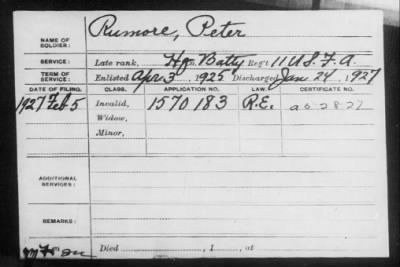 NAME OF SOLDIER: Rumore, Peter
SERVICE: Late rank, Hq. Batty Reg't 11 U.S.F.A.
TERM OF SERVICE: Enlisted Apr 3, 1925 Discharged Jan 24, 1927
DATE OF FILING. CLASS. APPLICATION NO. LAW. CERTIFICATE NO.
1927 Feb 5 Invalid, 1570 183 R.E. a 6 28 27
Widow,
Minor,
ADDITIONAL SERVICES:
REMARKS:
Died , 1 , at